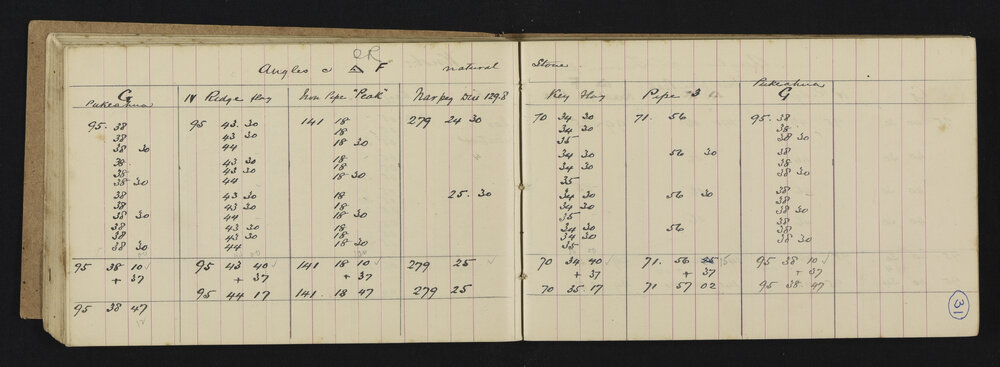 OR
Angles @ △ F natural Stone
G IV Ridge Flag Iron Pipe "Peak" War peg Dise 129.8 Key Flag Pipe 3 Pukeahua
Pukeahua G
95. 38 95 43 30 141 18 279 24 30 70 34 30 71. 56 95. 38
38 43 30 18 34 30 38
38 30 44 18 30 35 38 30
38 43 30 18 34 30 56 30 38
38 43 30 18 34 30 38
38 30 44 18 30 35 38 30
38 43 30 18 25. 30 34 30 56 30 38
38 43 30 18 34 30 38
38 30 44 18 30 35 38 30
38 43 30 18 34 30 56 38
38 43 30 18 34 30 38
38 30 44 18 30 35 38 30
95 38 10 95 43 40 141 18 10 279 25 70 34 40 71. 56 25 95 38 10
+ 37 + 37 + 37 + 37 + 37 + 37
95 44 17 141. 18 47 279 25 70 35. 17 71 57 02 95 38 47
95 38 47
31